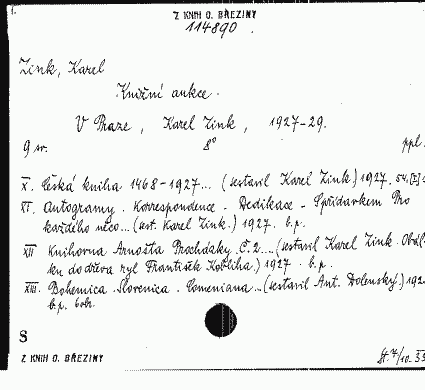 1.
Z KNIH O. BŘEZINY
114890.
Zink, Karel
Knižní aukce.
V Praze, Karel Zink, 1927-29.
9 sv. 8° ppl.
X. Česká kniha 1468-1927... (sestavil Karel Zink.) 1927. 54.
XI. Autogramy. Korrespondence. Dedikace. Přídavkem Pro
každého něco...(sest. Karel Zink.) 1927. b.p.
XII Knihovna Arnošta Procházky. Č. 2....(sestavil Karel Zink. Obál-
ku do dřeva ryl František Kobliha.) 1927. b.p.
XIII. Bohemica. Slovenica. Comeniana...(sestavil Ant. Dolenský.) 192
b.p. 6obr.
S
Z KNIH O. BŘEZINY